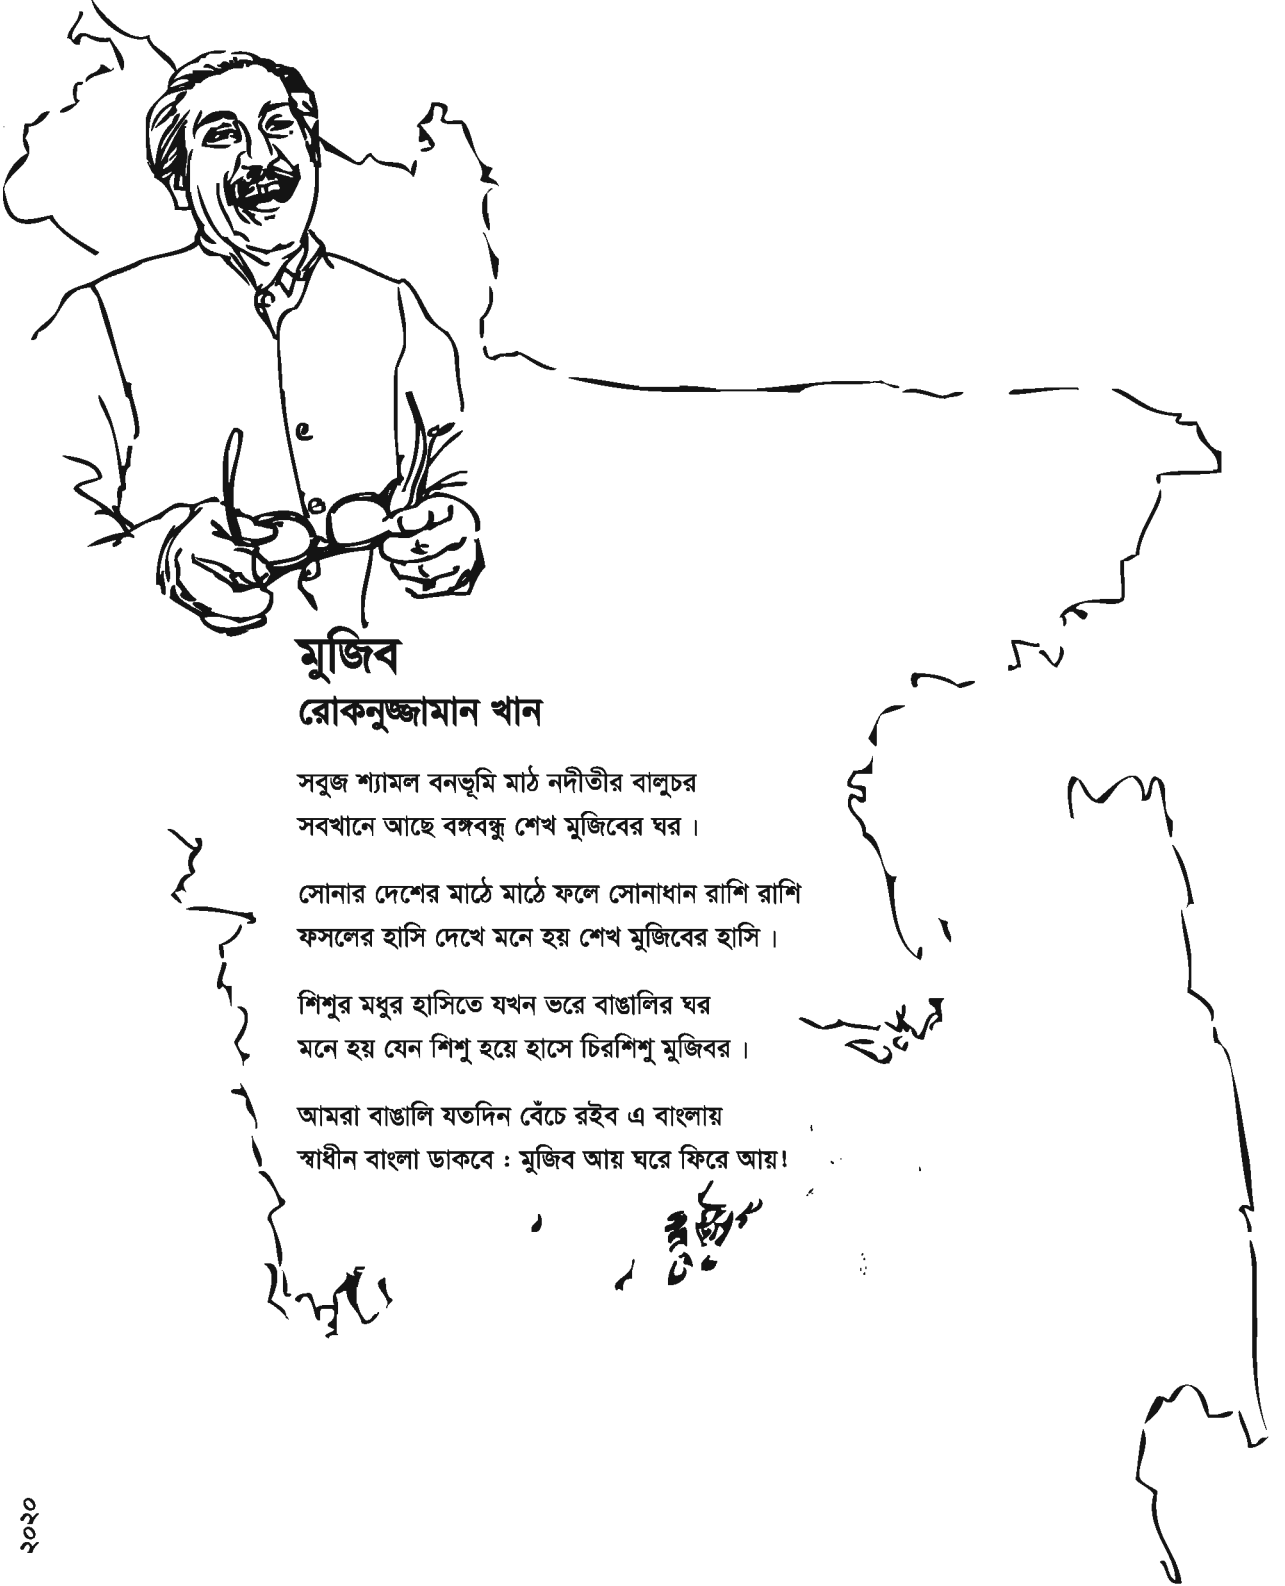 মুজিব
রোকনুজ্জামান খান
সবুজ শ্যামল বনভূমি মাঠ নদীতীর বালুচর
সবখানে আছে বঙ্গবন্ধু শেখ মুজিবের ঘর।
সোনার দেশের মাঠে মাঠে ফলে সোনাধান রাশি রাশি
ফসলের হাসি দেখে মনে হয় শেখ মুজিবের হাসি।
শিশুর মধুর হাসিতে যখন ভরে বাঙালির ঘর
মনে হয় যেন শিশু হয়ে হাসে চিরশিশু মুজিবর।
আমরা বাঙালি যতদিন বেঁচে রইব এ বাংলায়
স্বাধীন বাংলা ডাকবে : মুজিব আয় ঘরে ফিরে আয়!
২০২০